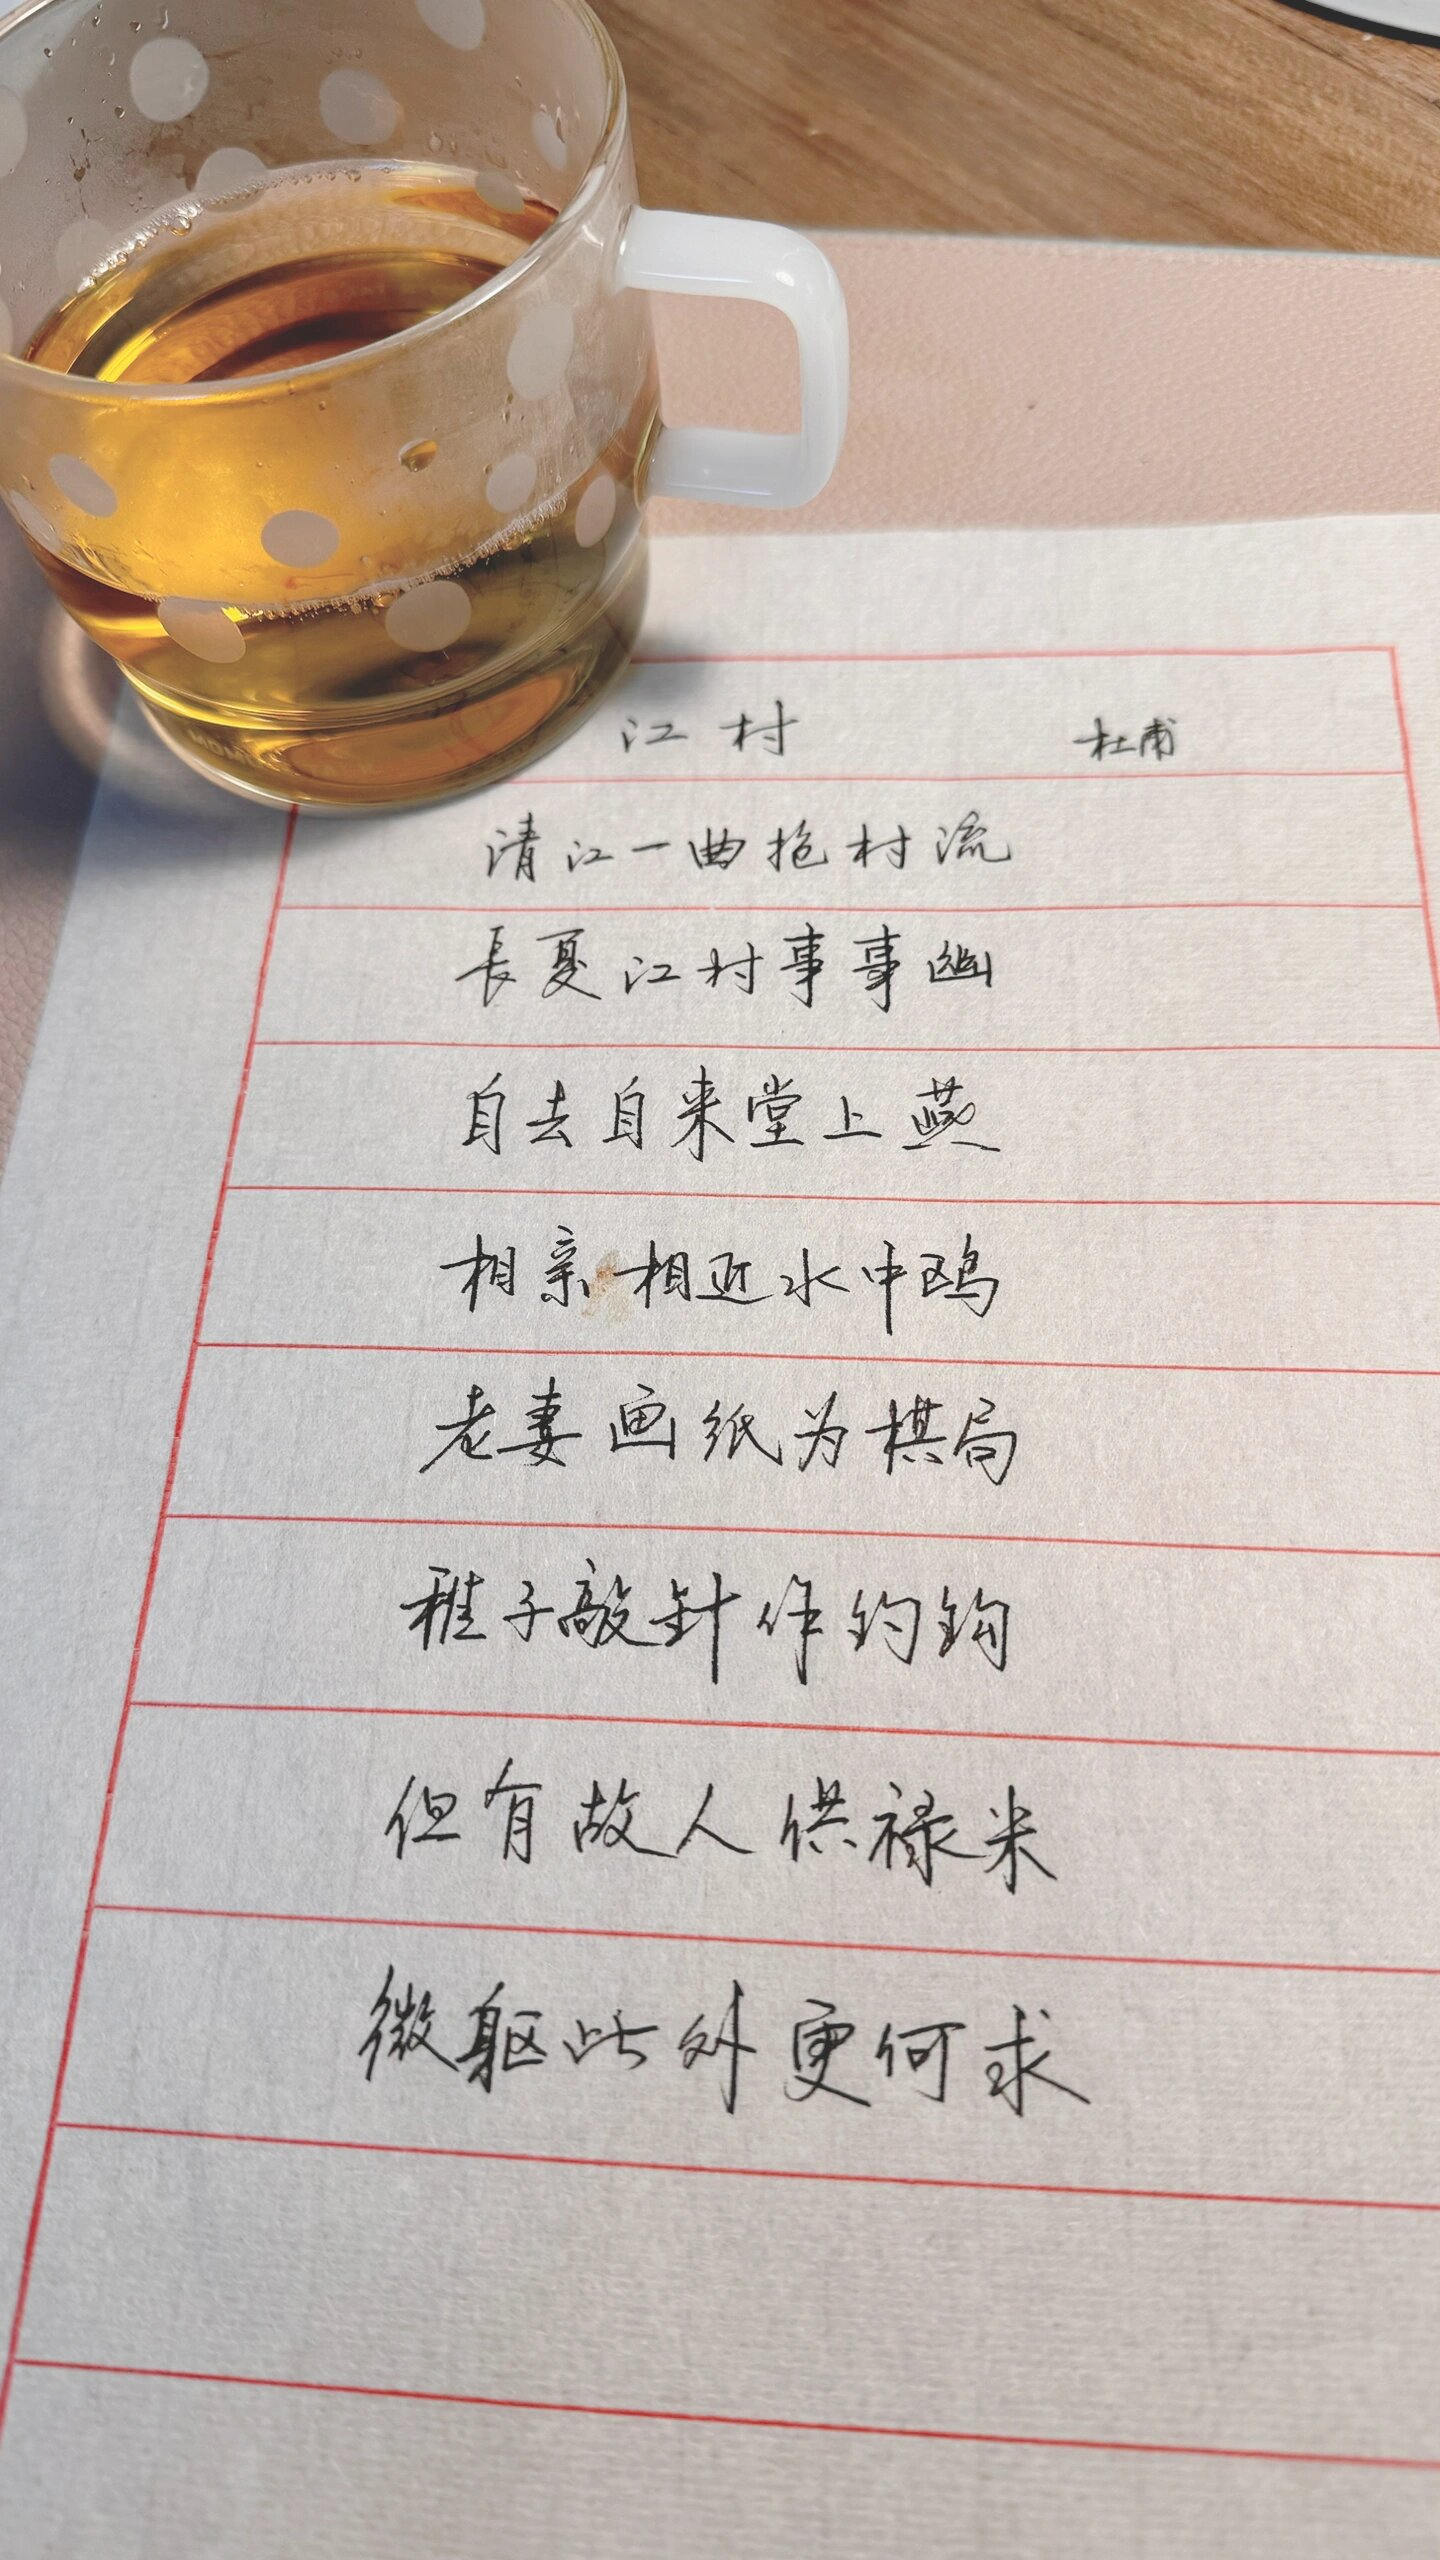 江村 杜甫
清江一曲抱村流
長夏江村事事幽
自去自来堂上燕
相亲相近水中鸥
老妻画纸为棋局
稚子敲针作钓钩
但有故人供禄米
微躯此外更何求